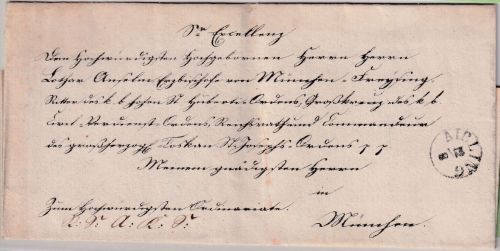 Sr Excellenz
Dem Hochwürdigsten Hochgebornen Herrn Herrn
Lothar Anselm Erzbischofe von München-Freysing,
Ritter des k. b. hohen St. Huberti-Ordens, Großkreuz des k. b.
Civil-Verdienst-Ordens, Reichsrath und Commandeur
des großherzogl. Toskan. St. Josephs-Ordens p p
Meinem gnädigsten Herrn
in
Zum Hochwürdigsten Ordinariate.
München.
AIBLING